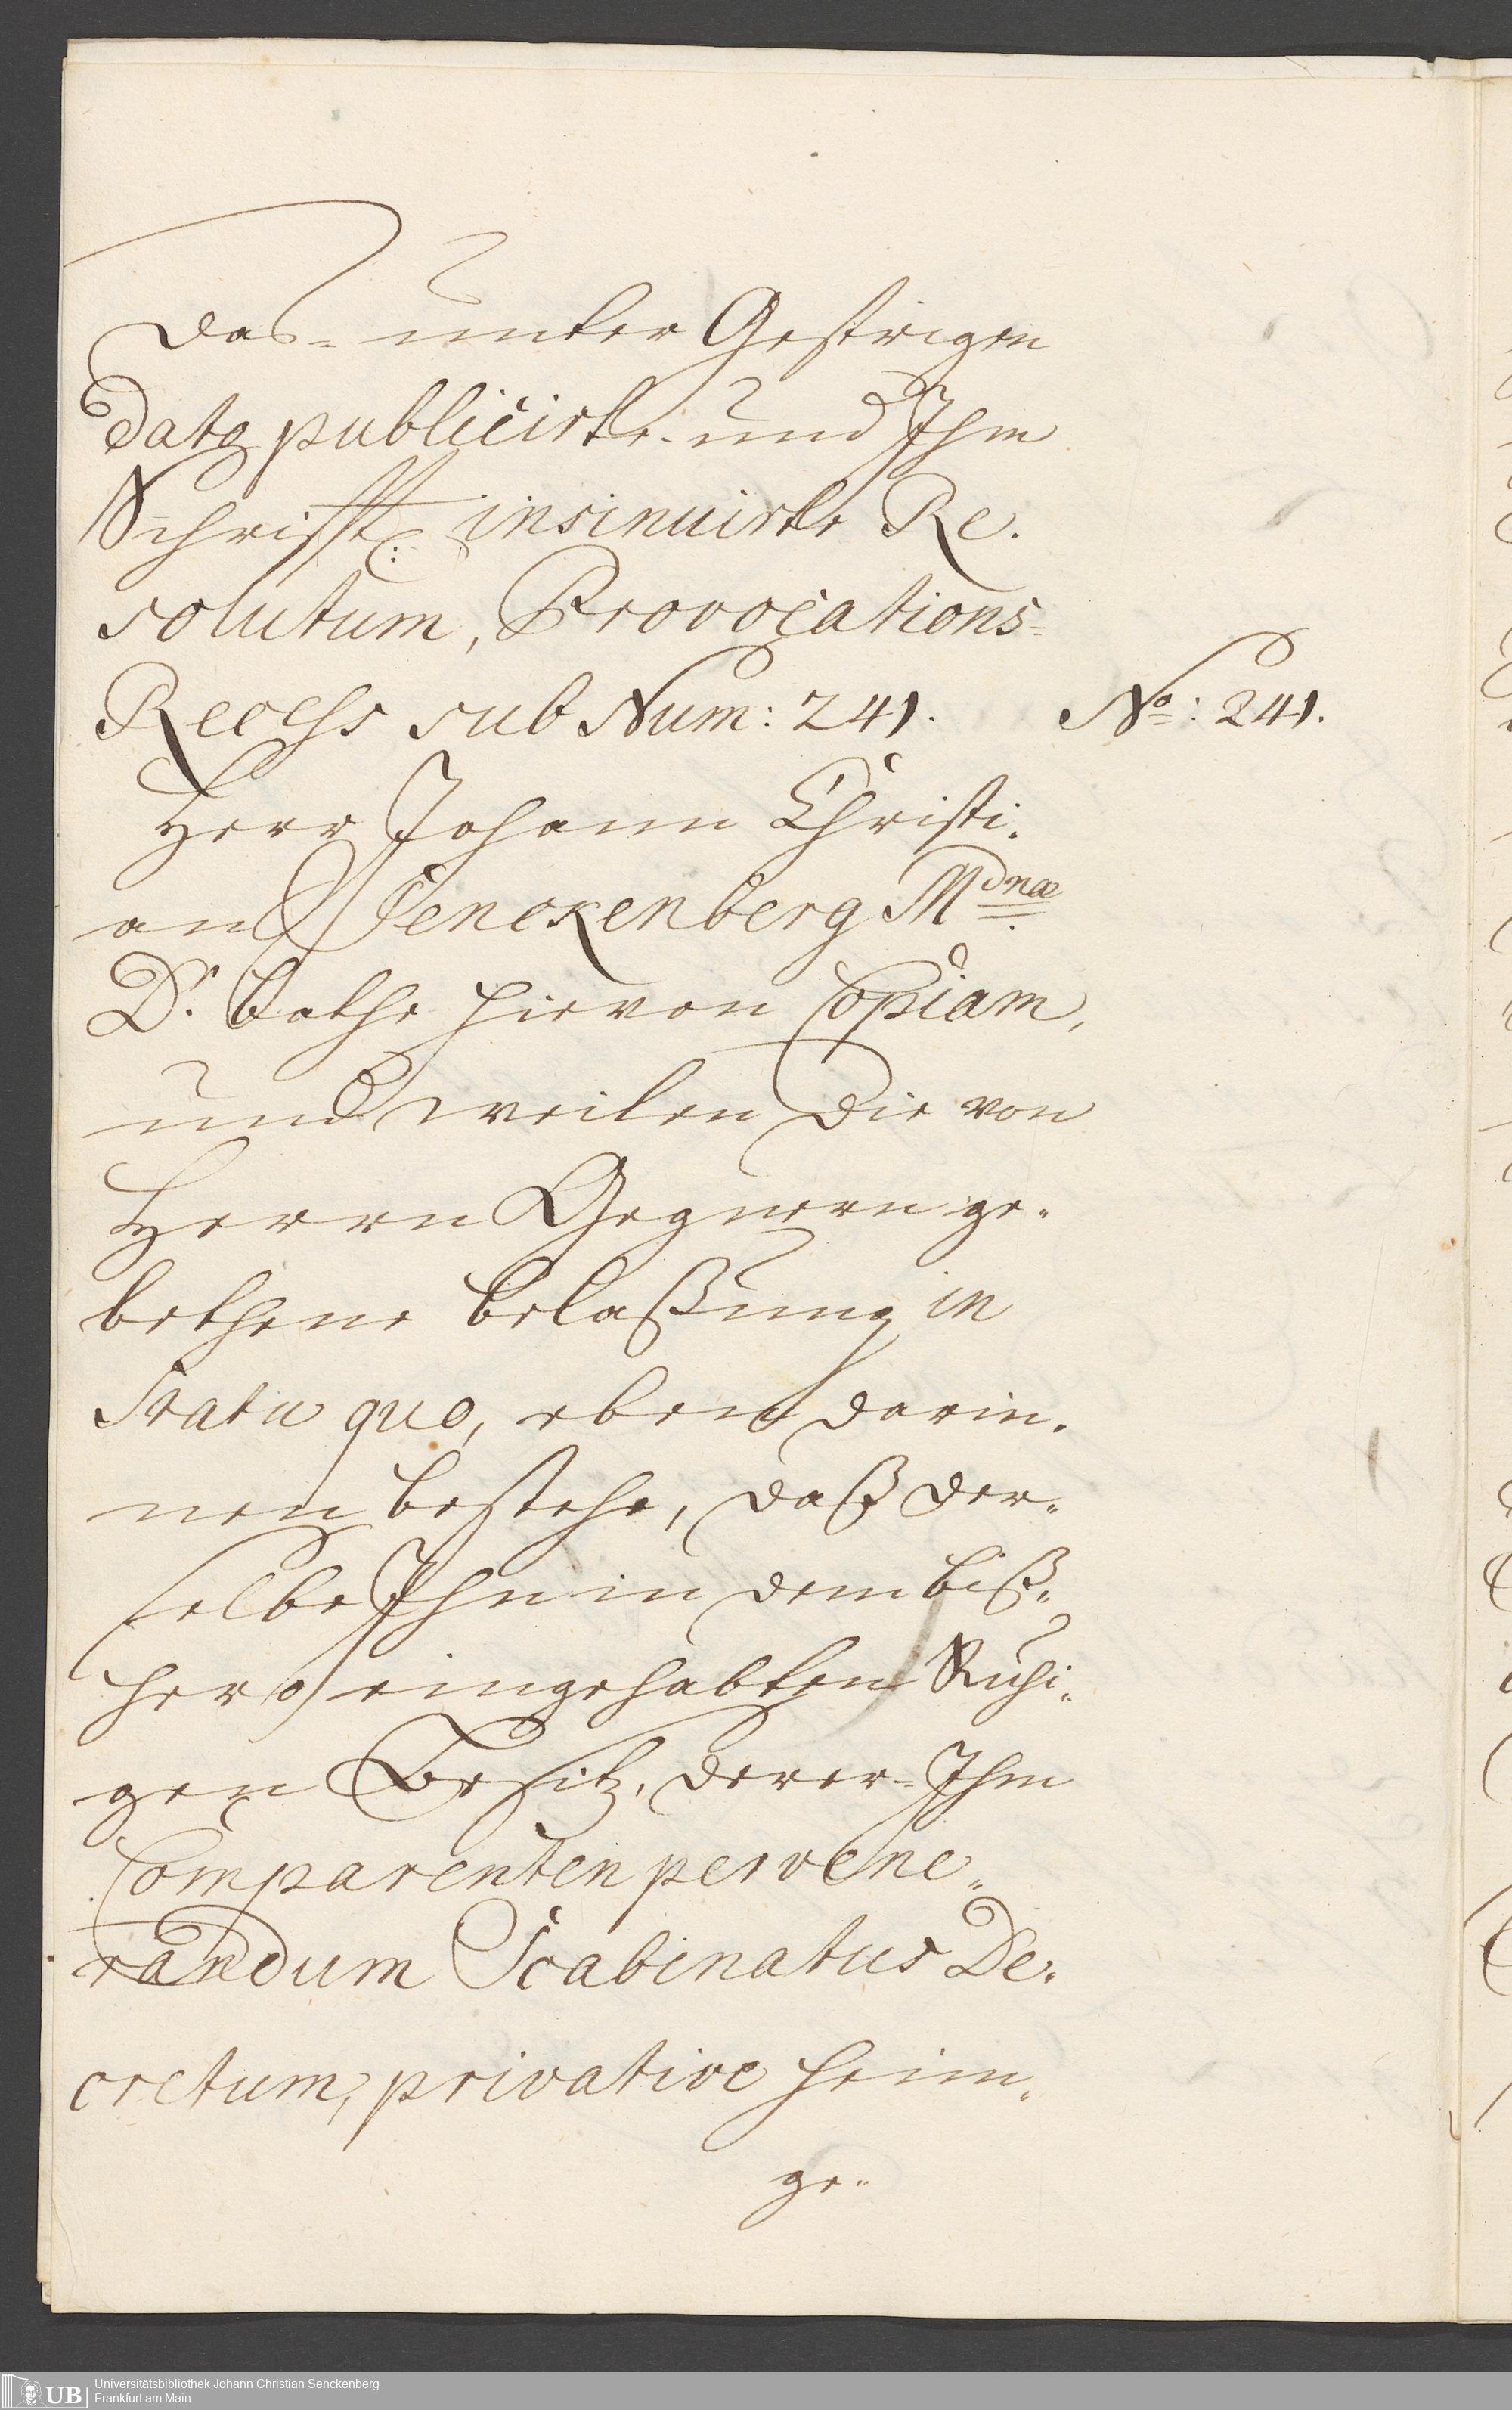 Das- unter Gestrigen
dato publicirte- und Ihm
Schrifftl: insinuirte Re-
solutum, Provocations-
Recess sub Num: 241.
No: 241.
Herr Johann Christi-
an Senckenberg Mdnae
Dr. bathe hiervon Copiam,
und weilen die von
Herrn Gegnern ge-
bethene belaßung in
Statu quo, eben darin-
nen bestehe, daß der-
selbe Ihn in dem biß-
hero eingehabten Ruhi-
gen Besitz, derer- Ihm
Comparenten per vene-
randum Scabinatus De-
cretum, privative heim-
ge-
UB
Universitätsbibliothek Johann Christian Senckenberg
Frankfurt am Main